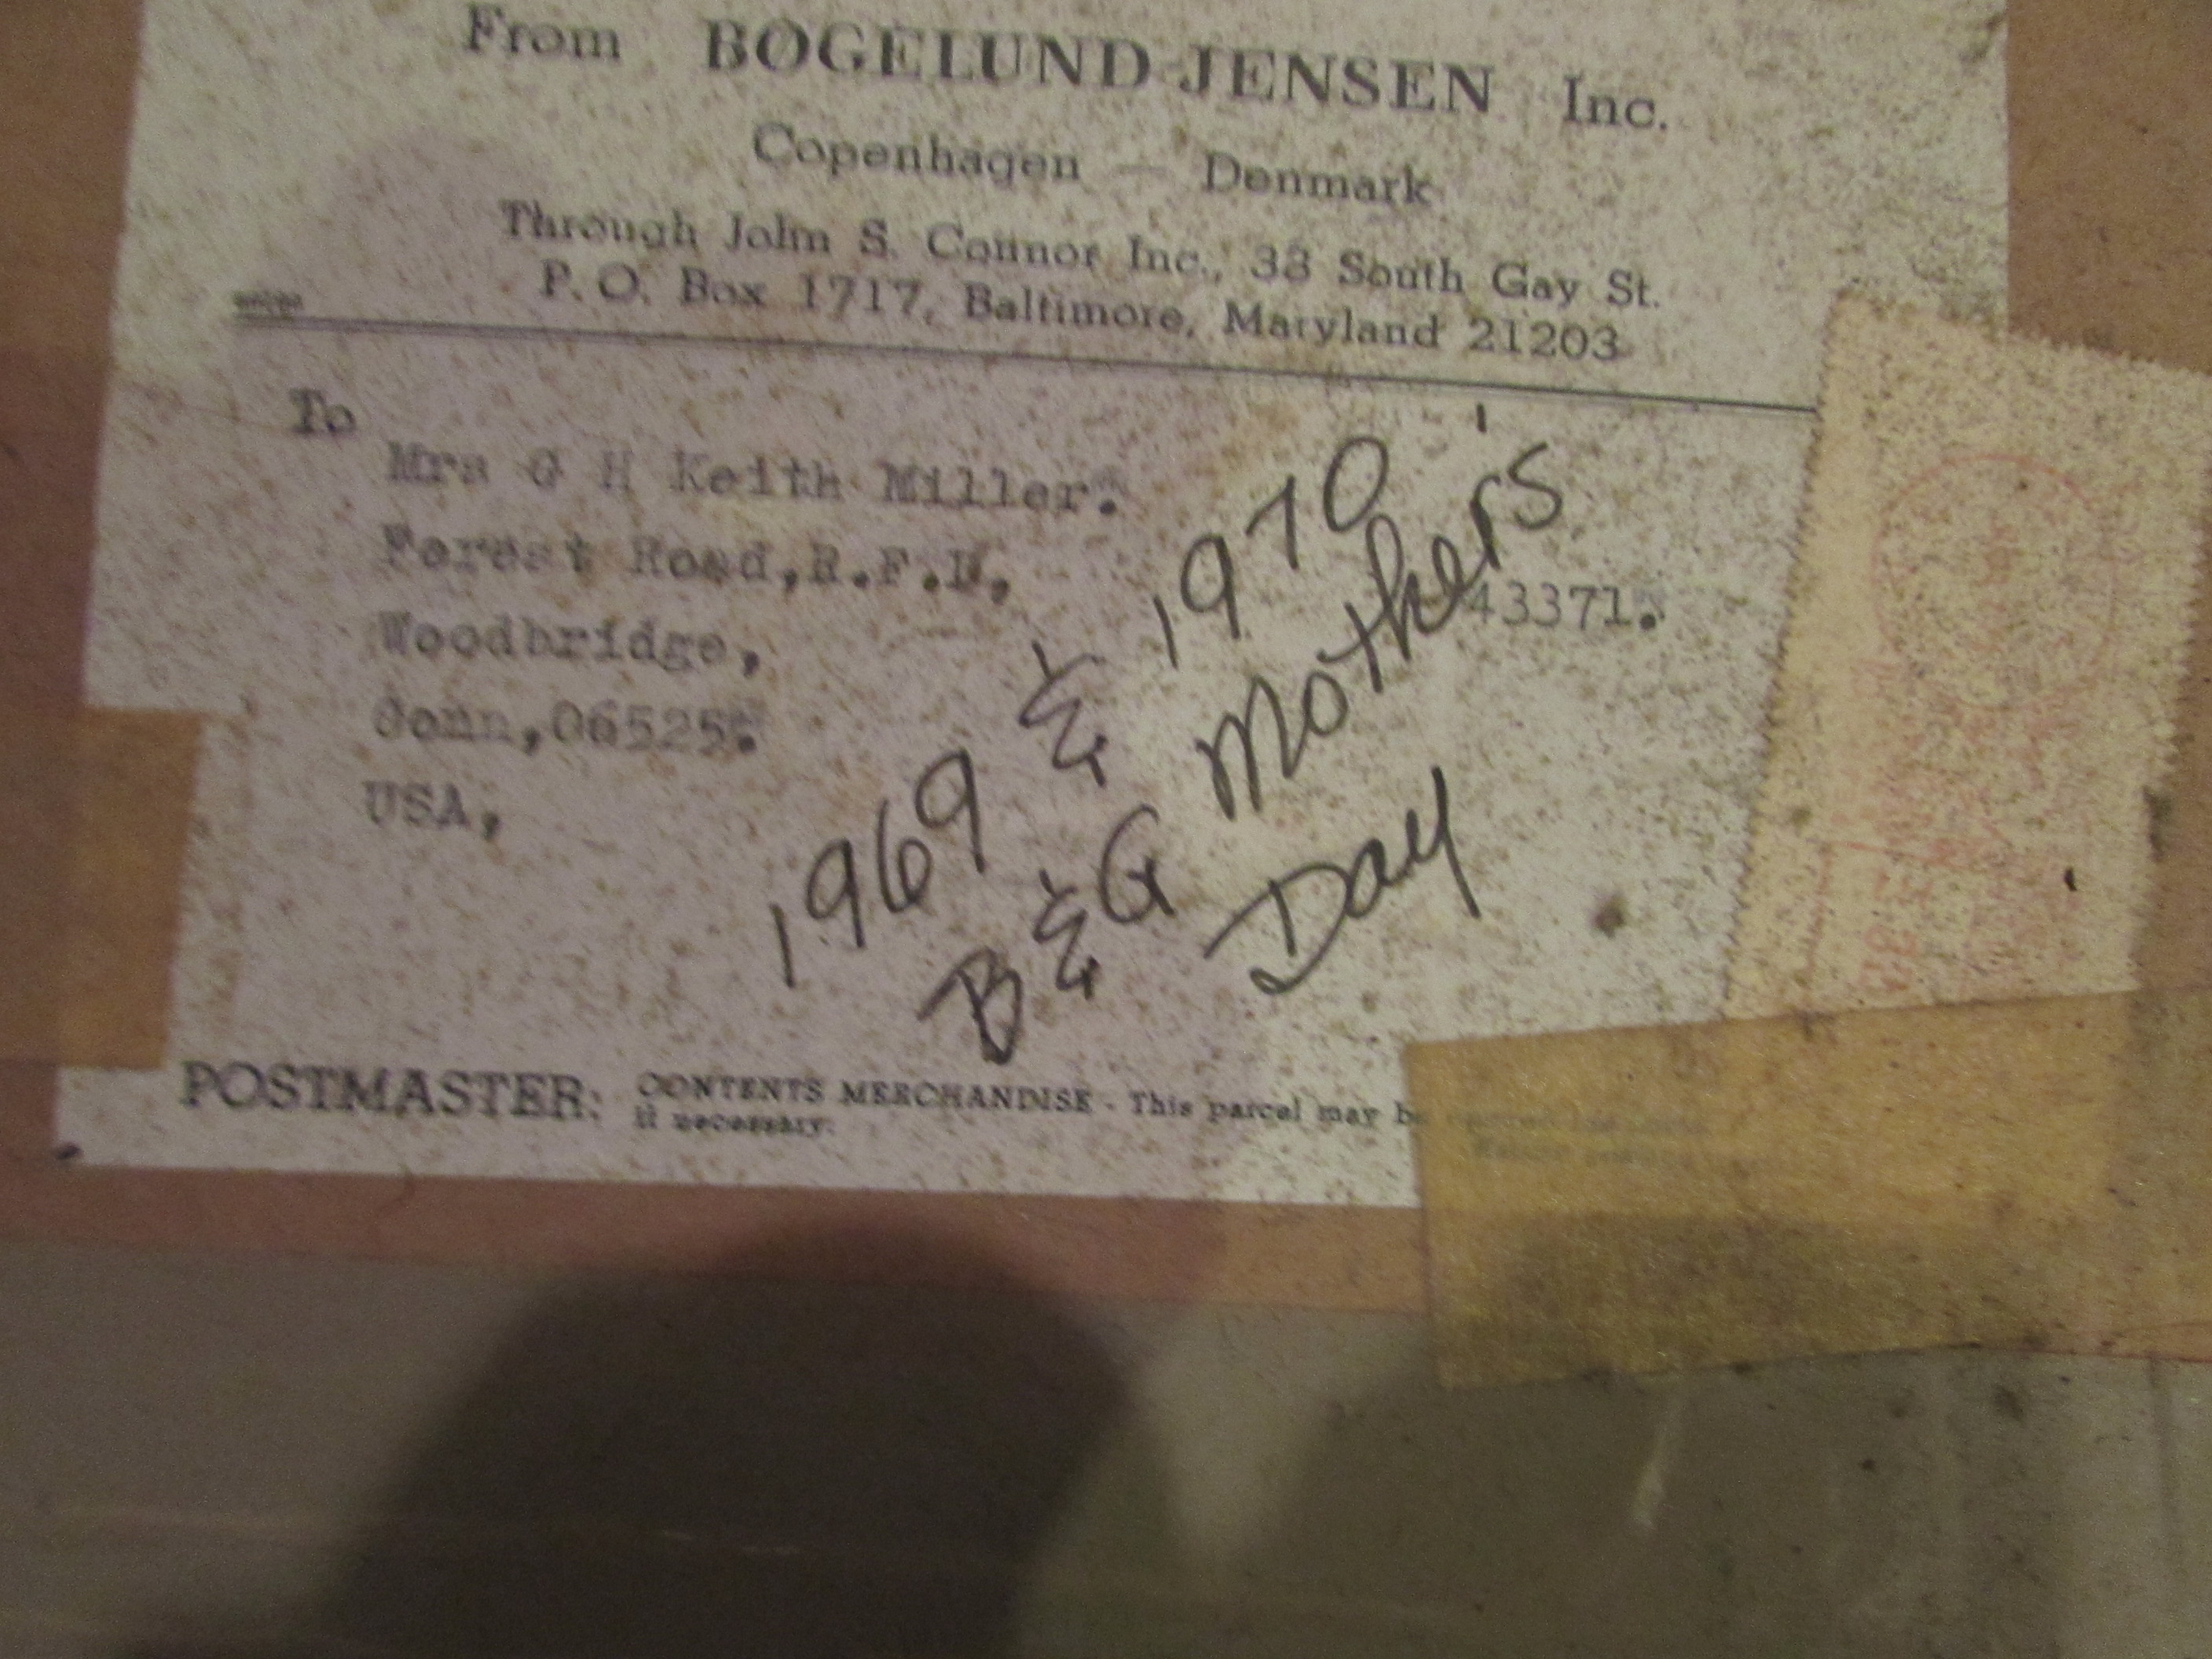 From BØGELUND-JENSEN Inc.
Copenhagen — Denmark
Through John S. Connor Inc., 33 South Gay St.
P. O. Box 1717, Baltimore, Maryland 21203
To
Mrs G H Keith Miller.
Forest Road,R.F.D,
43371.
Woodbridge,
Conn,06525.
USA,
1969 & 1970
B & G Mother's
Day
POSTMASTER: CONTENTS MERCHANDISE - This parcel may be
if necessary.